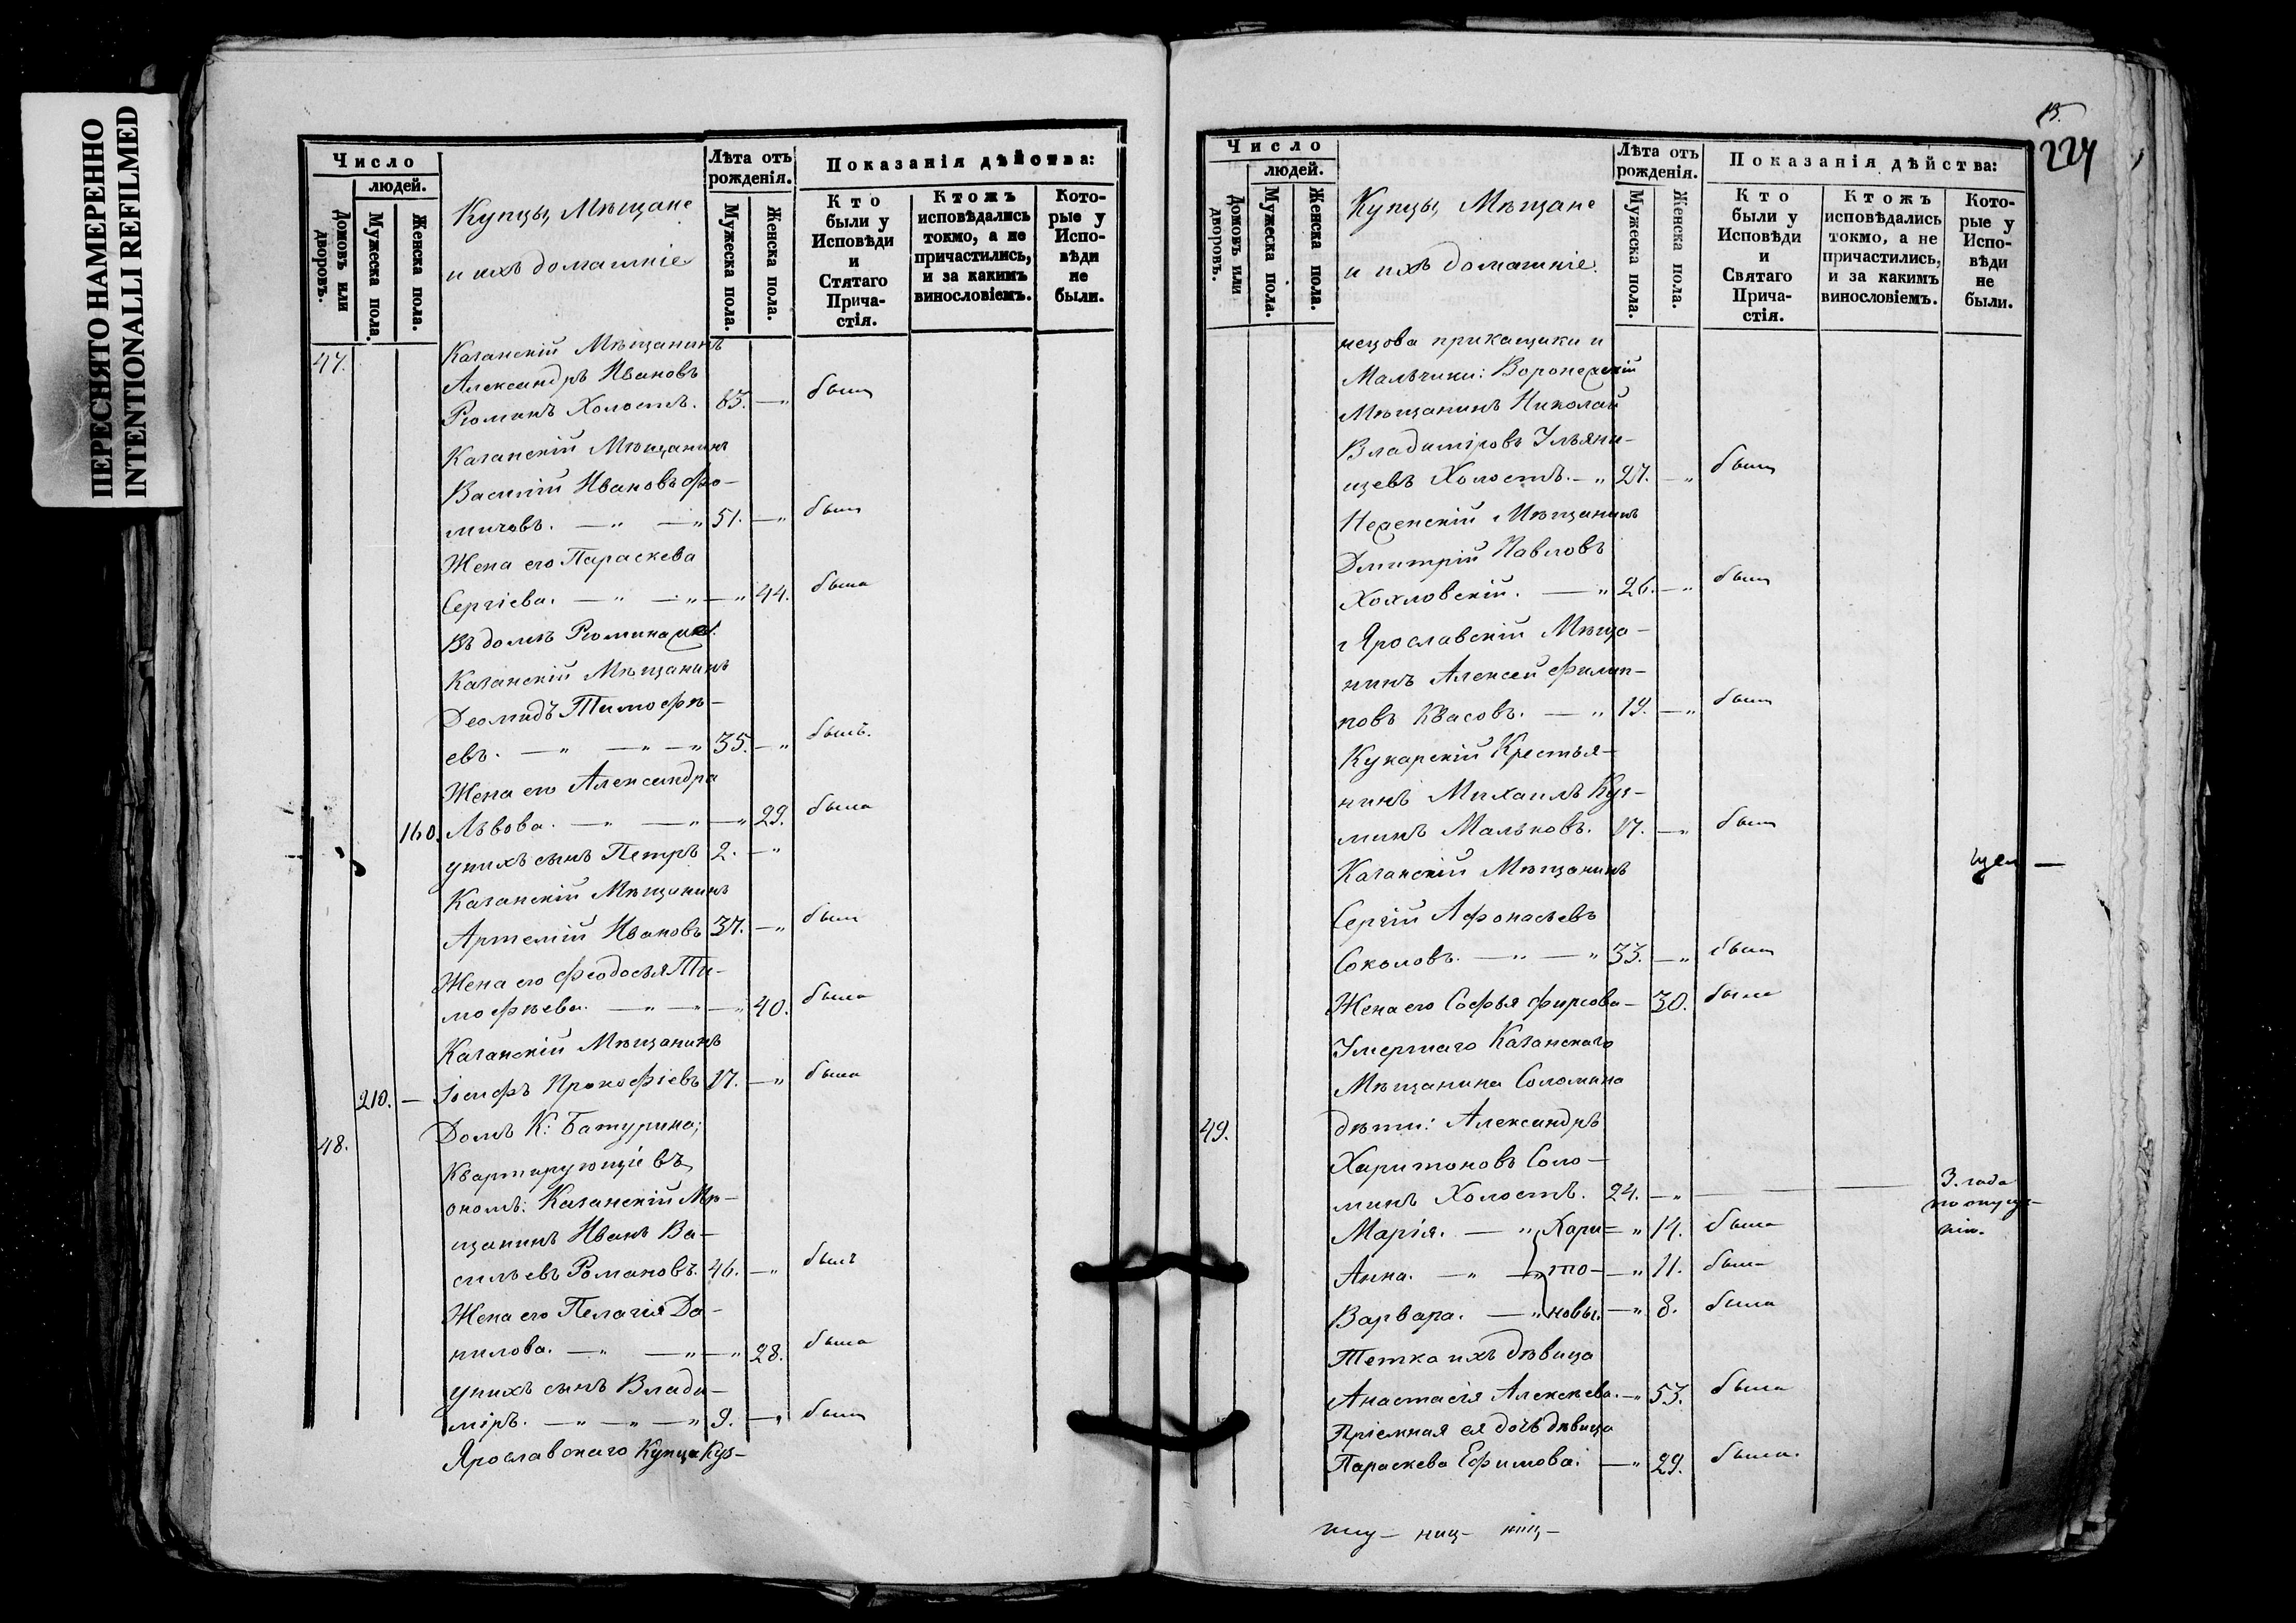 ПЕРЕСНЯТО НАМЕРЕННО
INTENTIONALLI REFILMED
Число
людей.
Домовъ или дворовъ.
Мужеска пола
Женска пола.
Купцы, Мѣщане
и ихъ домашніе
Лѣта отъ рожденія.
Мужеска пола.
Женска пола.
Показанія дѣйства:
Кто были у Исповѣди и Стятаго Причастія.
Ктожъ исповѣдались токмо, а не причастились, и за какимъ винословіемъ.
Которые у Исповѣди не были.
47. Казанскій Мѣщанинъ
Александръ Ивановъ
Рюминъ Холостъ. 65. — " былъ
Казанскій Мѣщанинъ
Василій Ивановъ Фо-
мичовъ. — " — " 51. — " былъ
Жена его Параскева
Сергіева. — " — " — " 44. была
Въ домѣ Рюмина
Казанскій Мѣщанинъ
Деомидъ Тимофѣ-
евъ. — " — " — " 35. — " былъ.
Жена его Александра
160. Львова. — " — " — " 29. была
у нихъ сынъ Петръ 2. — "
Казанскій Мѣщанинъ
Артемій Ивановъ 37. — " былъ
Жена его Феодосья Ти-
мофѣева. — " — " — " 40. была
Казанскій Мѣщанинъ
210. — Іосифъ Прокофіевъ 17. — " была
48. Домъ К: Батурина;
Квартирующіе въ
ономъ: Казанскій Мѣ-
щанинъ Иванъ Ва-
сильевъ Романовъ. 46. — " былъ
Жена его Пелагія Да-
нилова. — " — " — " 28. была
у нихъ сынъ Влади-
міръ. — " — " — " 9. — " былъ
Ярославскаго Купца Куз-
13.
224
Число
людей.
Домовъ или дворовъ.
Мужеска пола.
Женска пола.
Купцы, Мѣщане
и ихъ домашніе.
Лѣта отъ рожденія.
Мужеска пола.
Женска пола.
Показанія дѣйства:
Кто были у Исповѣди и Святаго Причастія.
Ктожъ исповѣдались токмо, а не причастились, и за какимъ винословіемъ.
Которые у Исповѣди не были.
нецова прикащики и
Мальчики: Воронежскій
Мѣщанинъ Николай
Владиміровъ Ульяни-
щевъ Холостъ. — " 27. — " былъ
Неженскій Мѣщанинъ
Дмитрій Павловъ
Хохловскій. — " 26. — " былъ
Ярославскій Мѣща-
нинъ Алексей Филип-
повъ Квасовъ. — " 19. — " былъ
Кукарскій Крестья-
нинъ Михаилъ Куз-
минъ Мальковъ. 17. — " былъ
Казанскій Мѣщанинъ
Сергій Афонасьевъ
Соколовъ. — " — " 33. — " былъ
Жена его Софья Фирсова — 30. была
Умершаго Казанскаго
Мѣщанина Соломина
49. дѣти: Александръ
Харитоновъ Соло-
минъ Холостъ. 24. — " — — 3. года
по опуще-
нію.
Марія. — " Хари- — " 14. была
Анна. — " — " то- — " 11. была
Варвара. — " новы. — " 8. была
Тетка ихъ дѣвица
Анастасія Алексѣева. — " 53. была
Пріемная ея дочь дѣвица
Параскева Ефимова. — " 29. была.